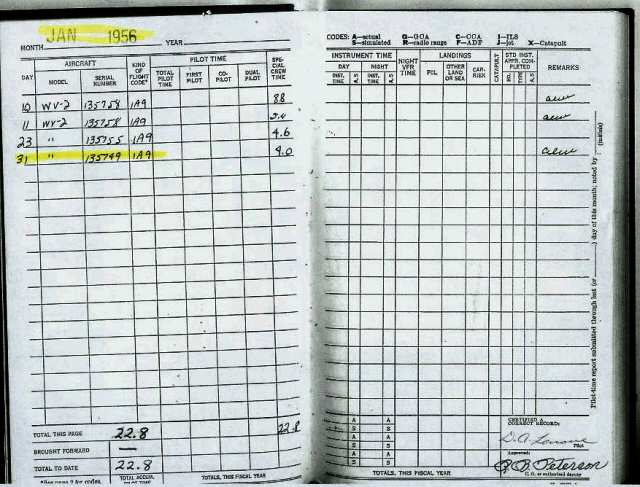 JAN 1956
MONTH YEAR
AIRCRAFT KIND OF FLIGHT CODE* PILOT TIME SPECIAL CREW TIME
DAY MODEL SERIAL NUMBER TOTAL PILOT TIME FIRST PILOT CO-PILOT DUAL PILOT
10 WV-2 135758 1A9 8.8
11 WV-2 135758 1A9
23 " 135755 1A9 4.6
31 " 135749 1A9 4.0
TOTAL THIS PAGE 22.8 22.8
BROUGHT FORWARD —
TOTAL TO DATE 22.8
TOTAL ACCUM. TOTALS, THIS FISCAL YEAR
CODES: A—actual G—GCA C—CCA I—ILS
S—simulated R—radio range F—ADF J—jet X—Catapult
INSTRUMENT TIME NIGHT VFR TIME LANDINGS CATAPULT STD INST. APPR. COMPLETED REMARKS
DAY NIGHT
INST. TIME A.S. INST. TIME A.S. FCL OTHER LAND OR SEA CARRIER NO. TYPE A.S.
crew
crew
crew
A A A
S S S
A A A
S S S
A A A
S S S
TOTALS, THIS FISCAL YEAR
Pilot-time report submitted through last (or ) day of this month; noted by: (initials)
CERTIFIED A CORRECT RECORD:
Pilot
Peterson
C. O. or authorized deputy